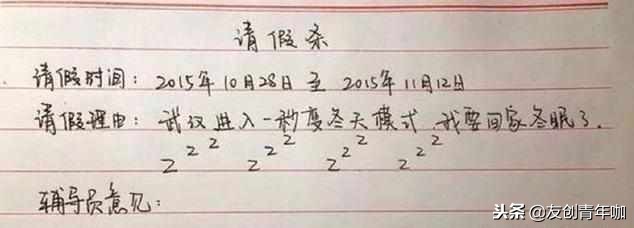 请假条
请假时间：2015年10月28日至2015年11月12日
请假理由：武汉进入一秒变冬天模式，我要回家冬眠了.
z z z z  z z z  z z z  z z z
辅导员意见：
头条@友创青年咖